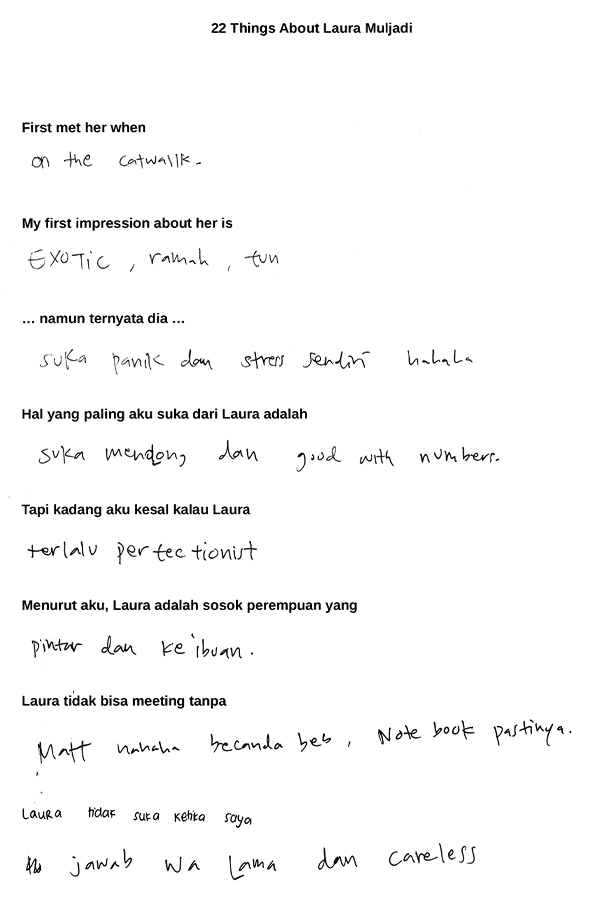 22 Things About Laura Muljadi
First met her when
on the catwalk.
My first impression about her is
EXOTIC , ramah , fun
... namun ternyata dia ...
suka panik dan stress sendiri hahaha
Hal yang paling aku suka dari Laura adalah
suka mendong dan good with numbers.
Tapi kadang aku kesal kalau Laura
terlalu perfectionist
Menurut aku, Laura adalah sosok perempuan yang
pintar dan ke'ibuan.
Laura tidak bisa meeting tanpa
Matt hahaha becanda beb , Note book pastinya.
Laura tidak suka ketika saya
jawab wa Lama dan careless